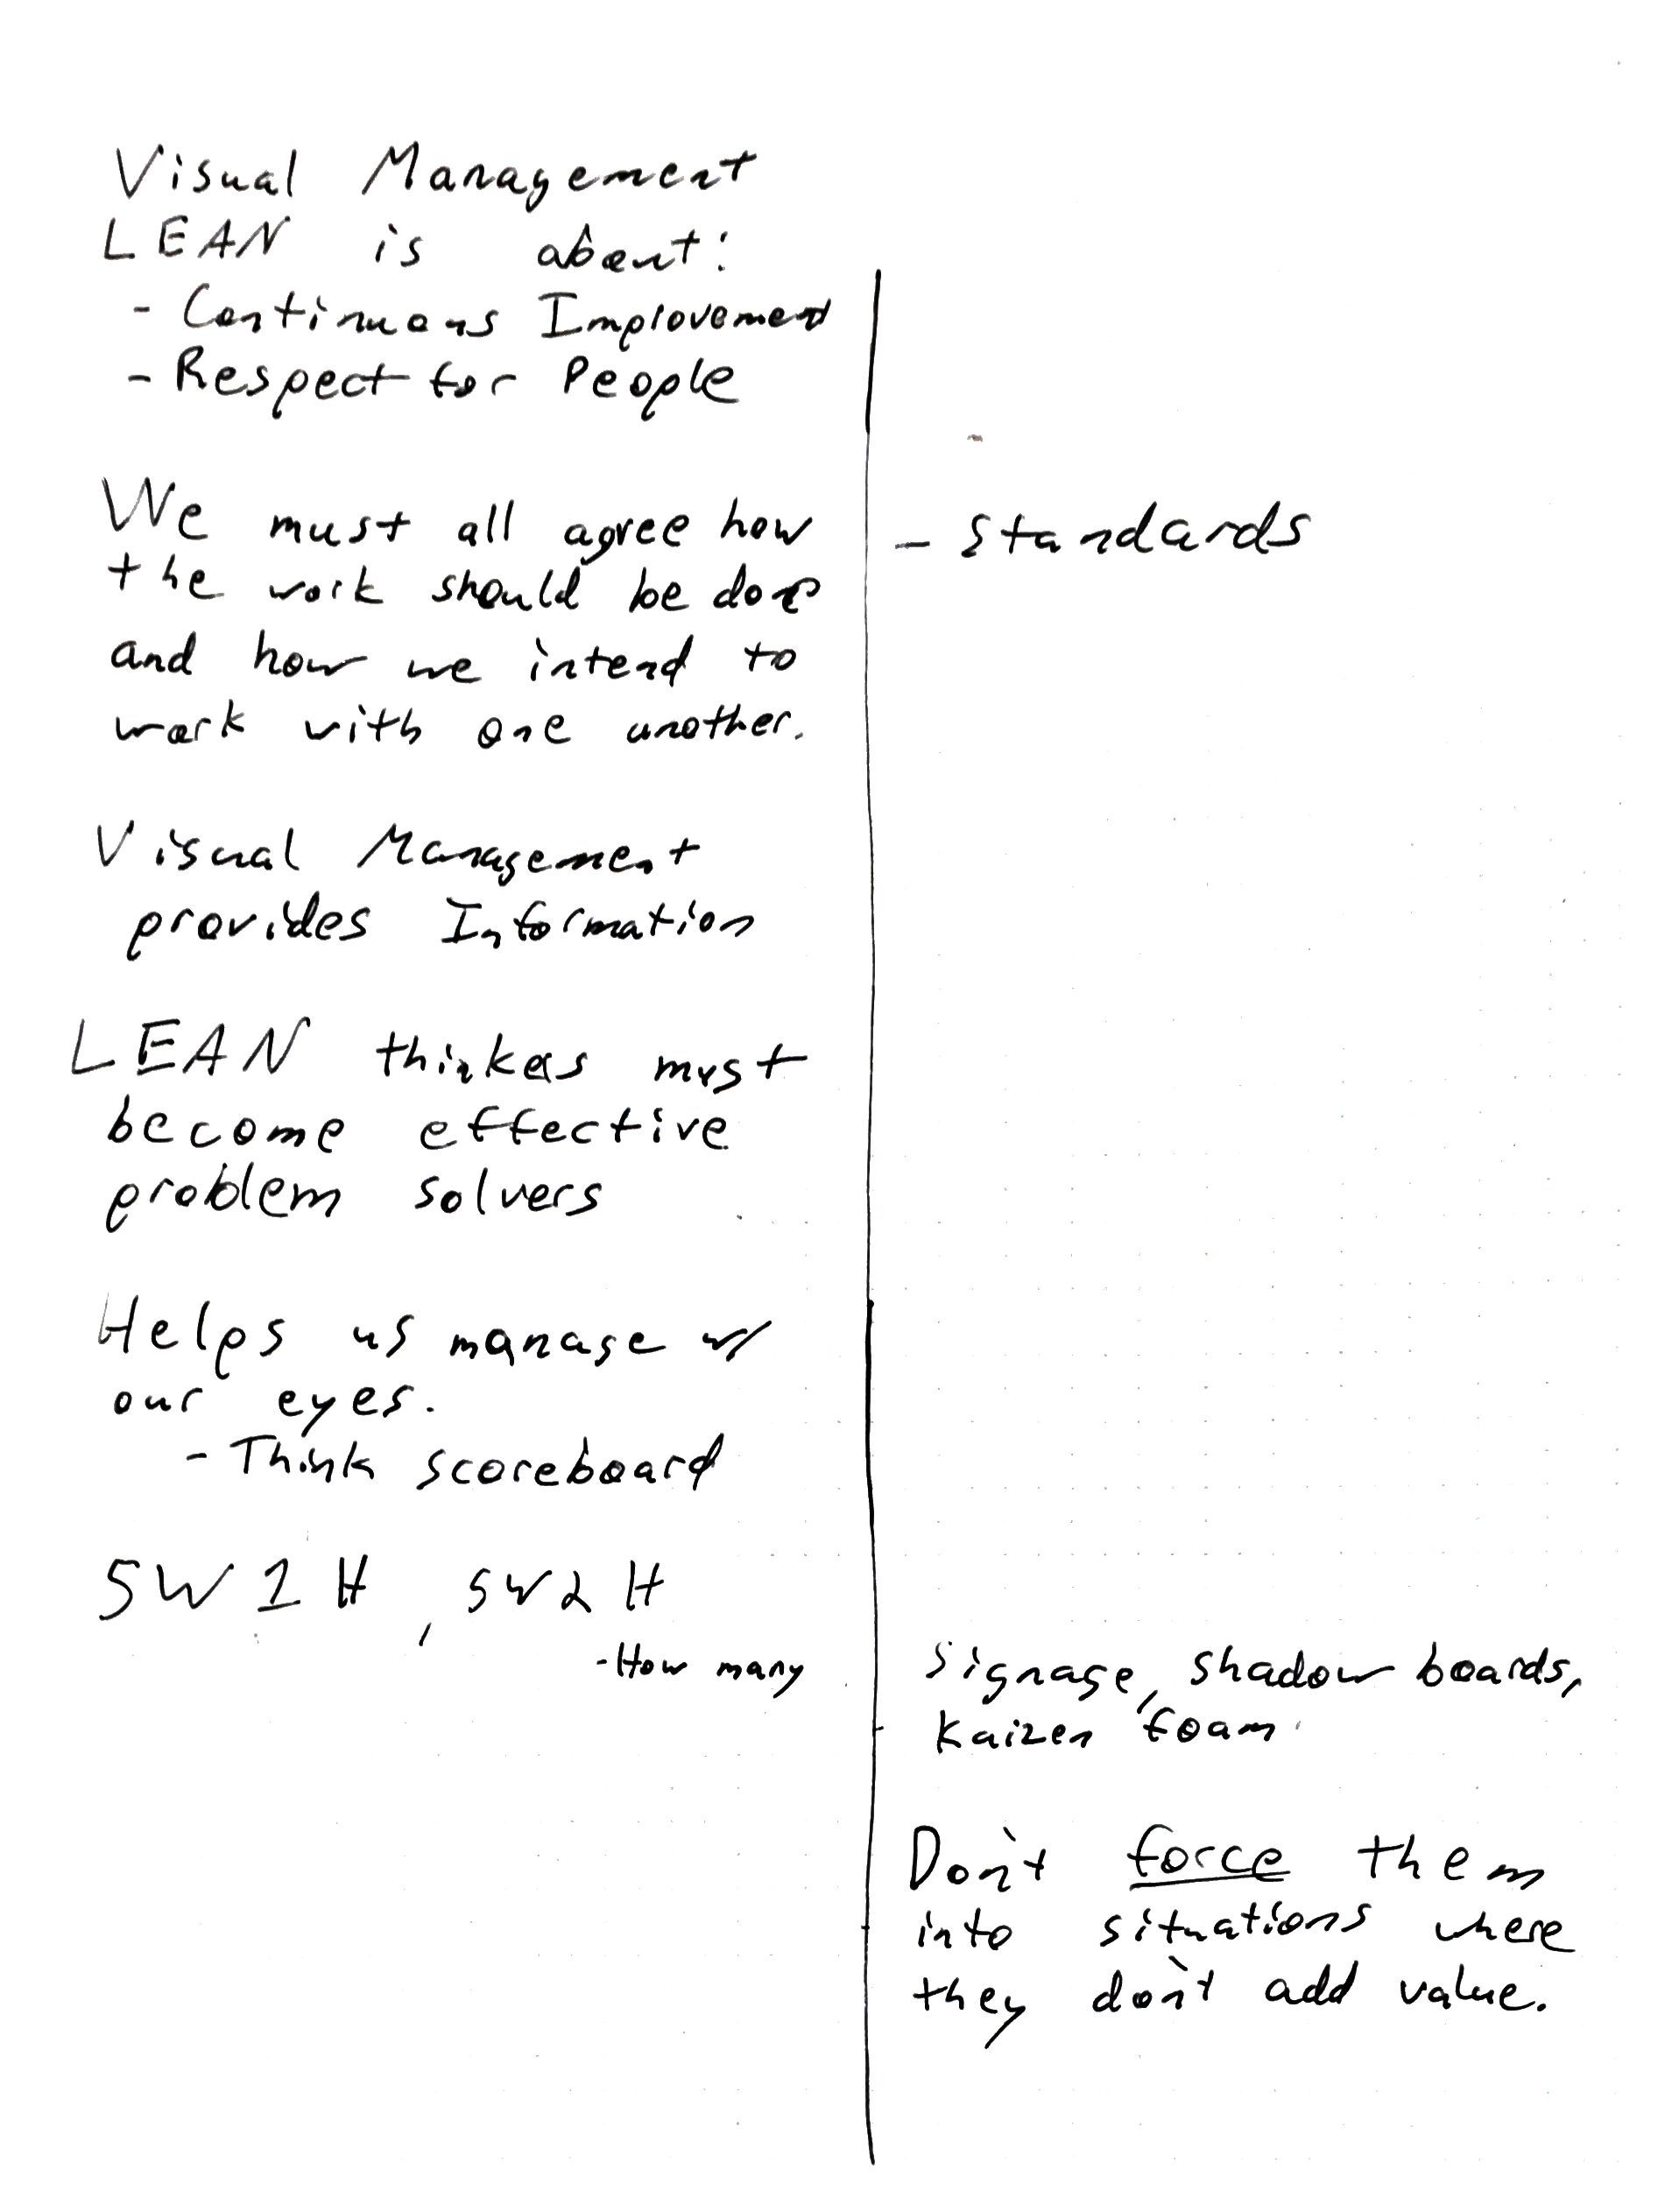 Visual Management
LEAN is about:
- Continuous Improvement
- Respect for People
We must all agree how
the work should be done
and how we intend to
work with one another.
Visual Management
provides Information
LEAN thinkers must
become effective
problem solvers
Helps us manage w/
our eyes.
- Think scoreboard
5W1H, 5W2H
- How many
- Standards
Signage, shadow boards,
Kaizen foam.
Don't force them
into situations where
they don't add value.